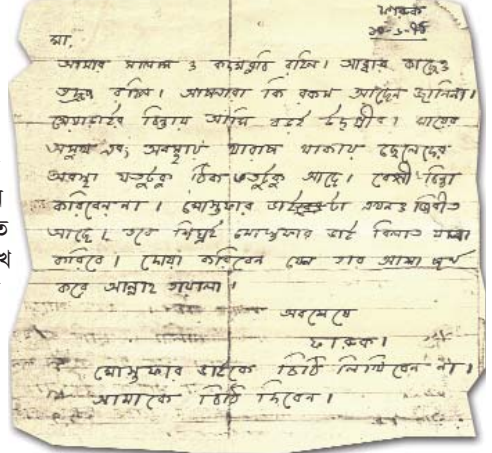 ফারুক
মা,
আমার সালাম ও কদমবুচি রহিল। আব্বার কাছেও
তদ্রূপ রহিল। আপনারা কি রকম আছেন জানিনা।
চিন্তায় আমি বড়ই উদগ্রীব। মায়ের
অসুখ এবং অবস্থায় খারাপ থাকায় ছেলেদের
অবস্থা যতটুকু ঠিক ততটুকু আছে। বেশী চিন্তা
করিবেন না। মোস্তফার ভাই এখনও জীবীত
আছে। তবে শিঘ্রই মোস্তফার ভাই বিলাত যাত্রা
করিবে। দোয়া করিবেন যেন তার আশা পূর্ণ
করে আল্লাহ তায়ালা।
অবশেষে
ফারুক।
মোস্তফার ভাইকে চিঠি লিখিবেন না।
আমাকে চিঠি দিবেন।
ত
খ